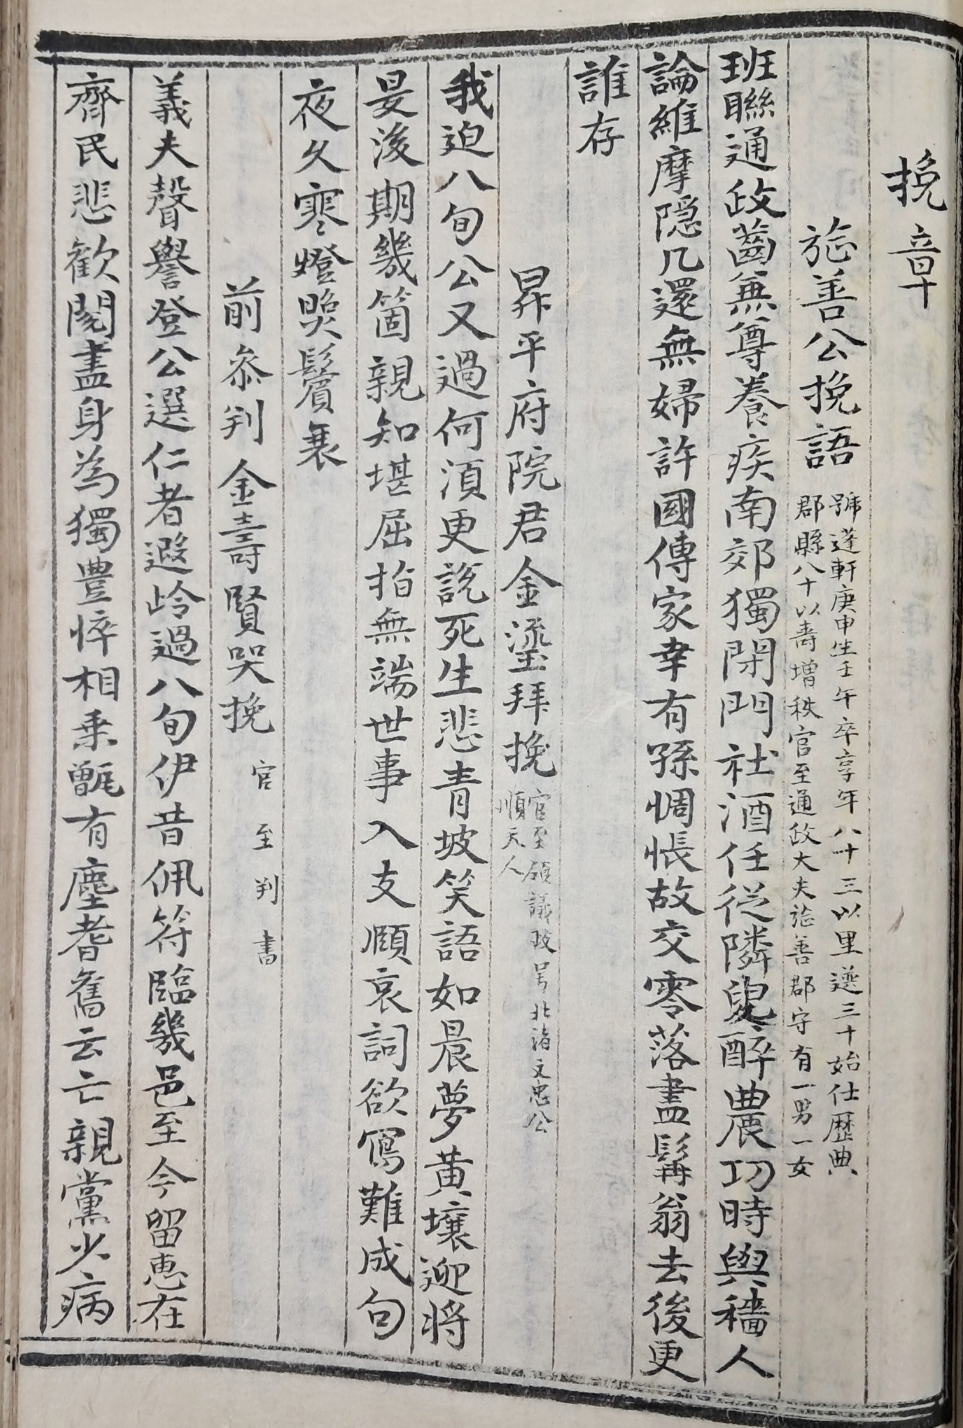 挽章
旌善公挽語
號蓬軒庚申生壬午卒享年八十三以里選三十始仕歷典
郡縣八十以壽增秩官至通政大夫旌善郡守有一男一女
班聯通政齒兼尊養疾南郊獨閉門社酒任從隣叟醉農功時與穡人
論維摩隱几還無婦許國傳家幸有孫惆悵故交零落盡髯翁去後更
誰存
昇平府院君金瑬拜挽
官至領議政号北渚文忠公
順天人
我迫八旬公又過何須更說死生悲青坡笑語如晨夢黃壤迎將
晏後期幾箇親知堪屈指無端世事入支頤哀詞欲寫難成句
夜久寒燈哭鬢衰
前叅判金壽賢哭挽
官至判書
義夫聲譽登公選仁者遐岭過八旬伊昔佩符臨幾邑至今留惠在
齊民悲歡閱盡身為獨豊悴相乘甑有塵耆舊云亡親黨少病